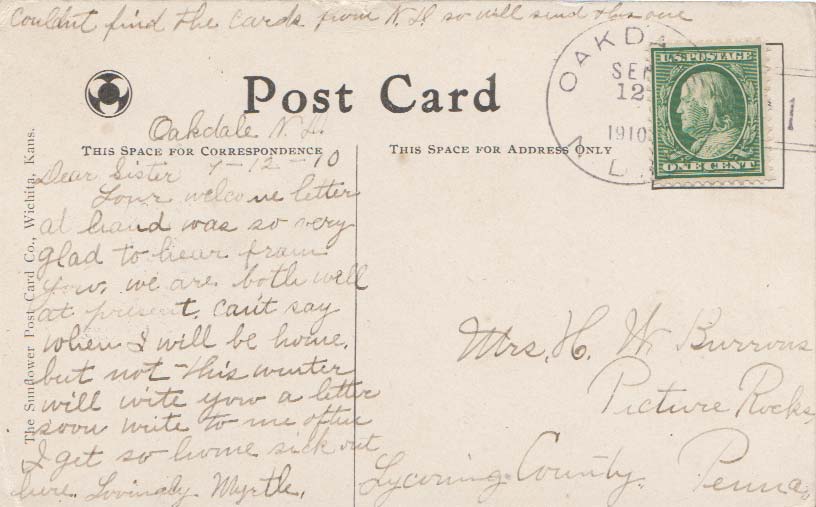 Couldn't find the cards from N. D so will send this one
Post Card
OAKDA
SEP
12
1910
N
U.S. POSTAGE
ONE CENT
1
Oakdale N. D.
THIS SPACE FOR CORRESPONDENCE
THIS SPACE FOR ADDRESS ONLY
The Sunflower Post Card Co., Wichita, Kans.
Dear Sister 9-12-10
Your welcome letter
at hand was so very
glad to hear from
you, we are both well
at present, can't say
when I will be home.
but not this winter
will write you a letter
soon write to me often
I get so home sick out
here. Lovingly Myrtle,
Mrs. H. W. Burrows
Picture Rocks,
Lycoming County. Penna.